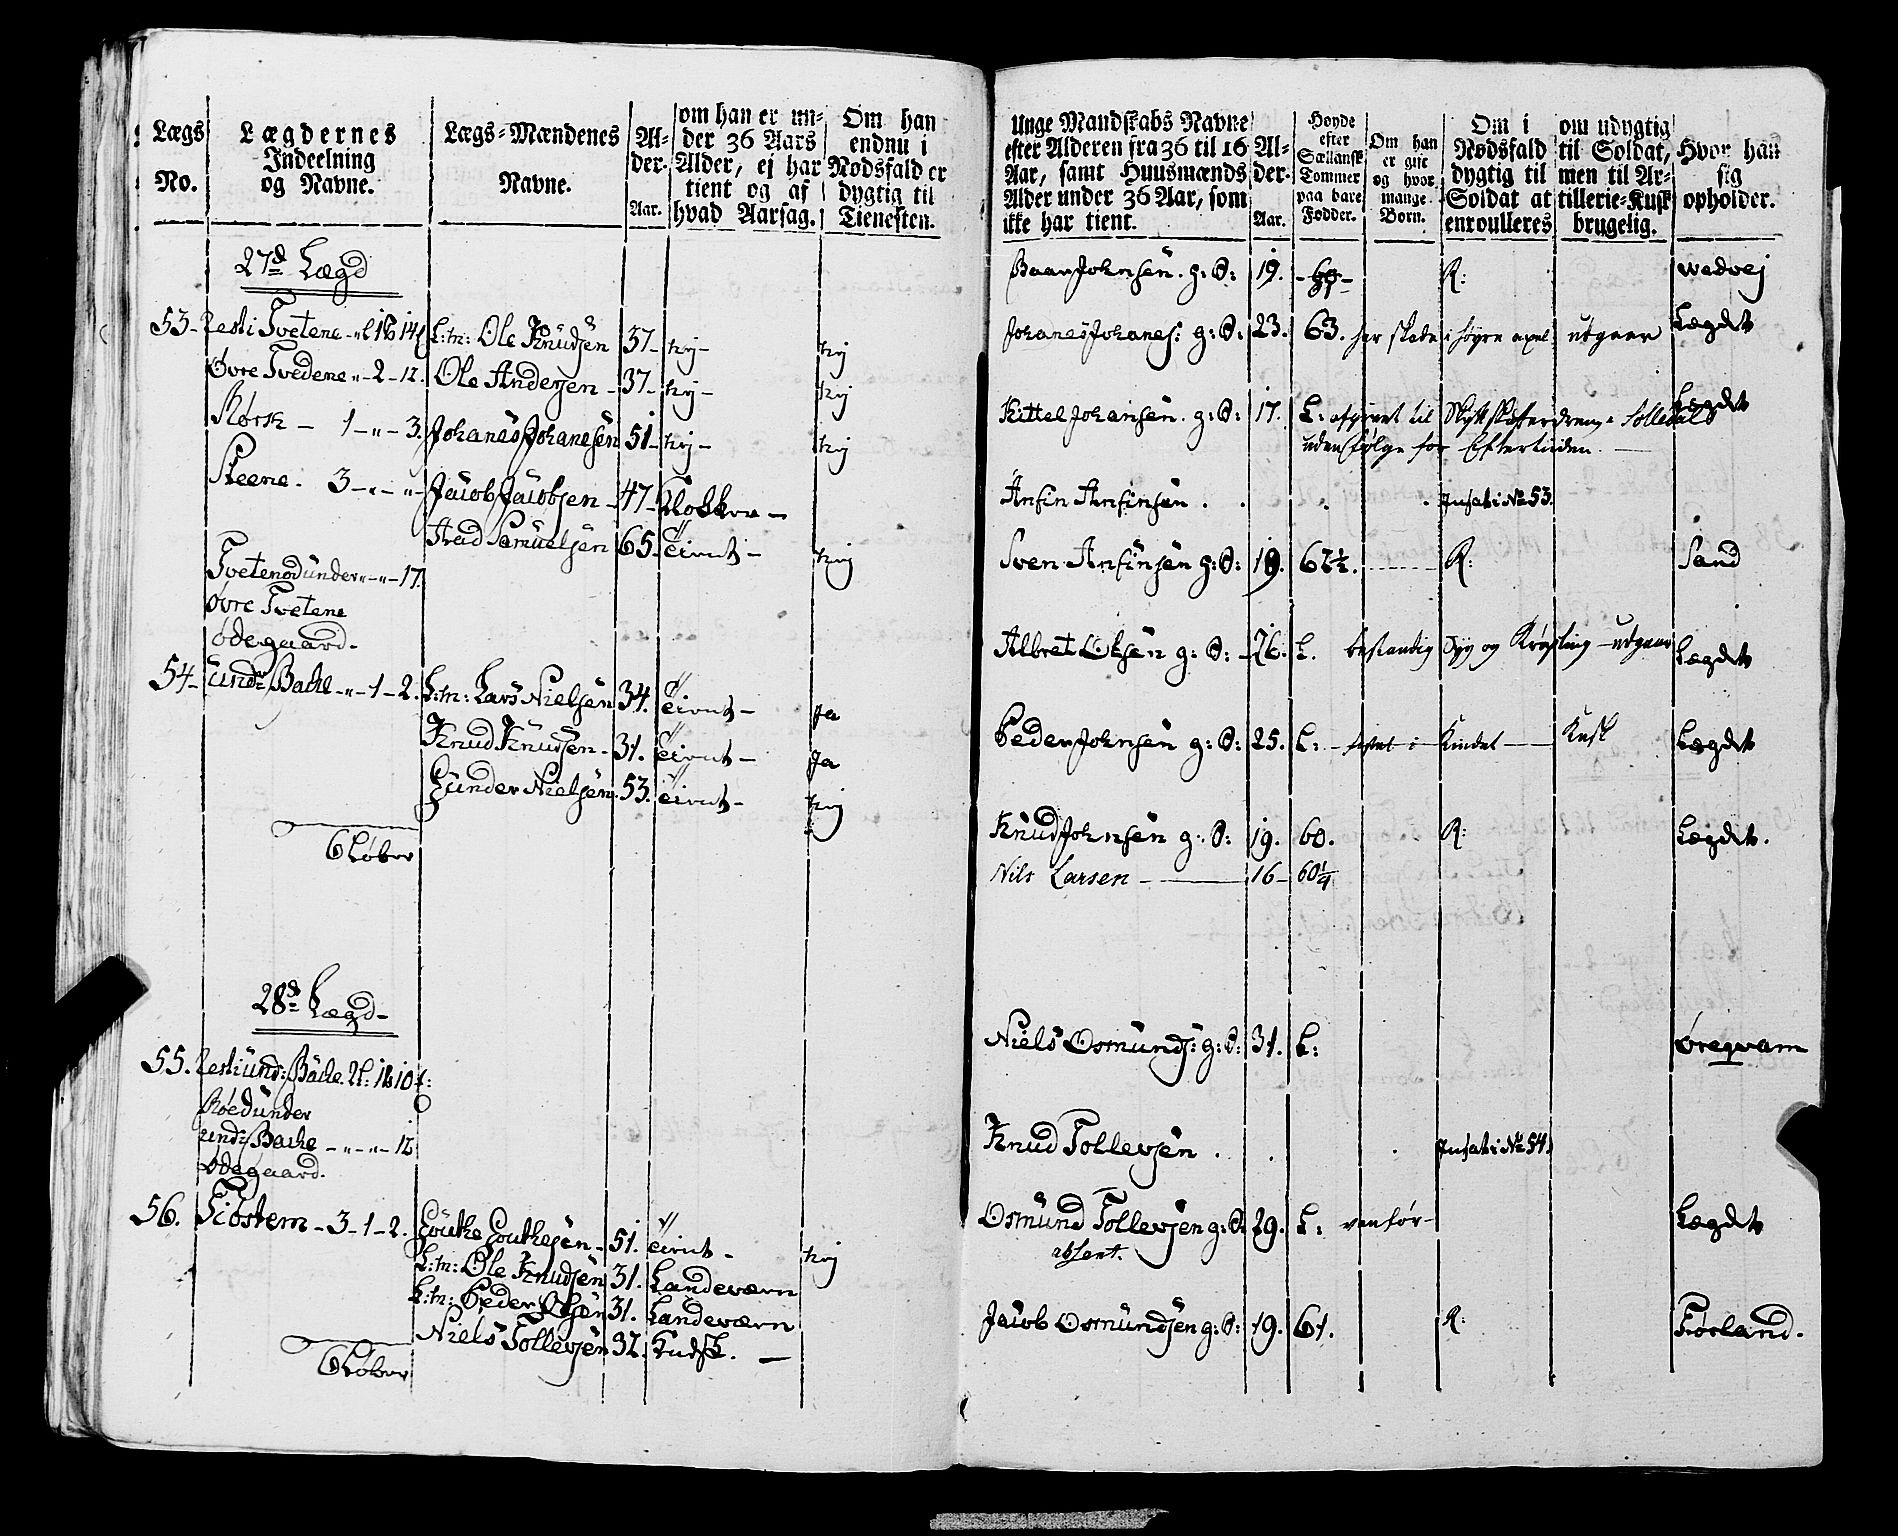 Lægs
No.
Lægdernes
Indeelning
og Navne.
Lægs-Mændenes
Navne.
Al-
der.
Aar.
om han er un-
der 36 Aars
Alder, ej har
tient og af
hvad Aarsag.
Om han
endnu i
Nødsfald er
dygtig til
Tienesten.
27de Lægd
53 - Rest i Tvetene
L:m: Ole Knudsen 37 - nej - nej
Øvre Tvedene - 2 - 12. Ole Andersen - 37 - nej - nej
Rørk - 1 - " - 3. Johanes Johanesen 51 - nej - nej
Steene - 3 - " - " - Jacob Jacobsen - 47 - Klokker -
Aad Samuelsen 65. tient - nej
Tvetenødunder - " - " - 17.
øvre Tvetene
ødegaard.
54 - und: Bache - " - 1 - 2. L:m: Lars Nielsen 34. tient - Ja
Knud Knudsen - 31. tient - Ja
Gunder Nielsen 53. tient - nej
6 Løber
28de Lægd -
55. Rest i und: Bache
Røedunder
und: Bache - " - " - 12
ødegaard.
56. Fiostem - 3 - 1 - 2. Gouthe Gouthesen - 51. tient - nej
L:m: Ole Knudsen 31. Landeværn
L:m: Peder 31. Landeværn
Niels Tollevsen 32. Kudsk. -
6 Løber
Unge Mandskabs Navne
efter Alderen fra 36 til 16
Aar, samt Huusmænds
Alder under 36 Aar, som
ikke har tient.
Al-
der.
Aar.
Høyde
efter
Sællansk
Tommer
paa bare
Fødder.
Om han
er gift
og hvor
mange
Børn.
Om i
Nødsfald
dygtig til
Soldat at
enroulleres
om udygtig
til Soldat,
men til Ar-
tillerie-Kusk
brugelig.
Hvor han
sig
opholder.
Baar Johnsen. g: S: 19. R: wedvej
Johanes Johanes: g: S: 23. 63. har skade i høyre axel: udgaar Lægdet
Kittel Johansen. g: S: 17. L: til Lægdet
uden følge for Eftertiden.
Anfin Anfinsen . . . . Insat i No 53.
Sven Anfinsen g: S: 19. 62½. R: Sand
Albret g: S: - 26. L. bestandig Syg og - udgaar Lægdet
Peder Johnsen g: S: 25. L: - Kusk Lægdet
Knud Johnsen g: S: 19. 60. R: Lægdet.
Nils Larsen - 16 - 60¼
Niels Osmunds: g: S: 31. L: Øreqvam
Knud Tollevsen . . . Insat i No 54.
Osmund Tollevsen g: S: 29. L: vanför - Lægdet
absent.
Jacob Osmundsen g: S: 19. 61. R: Førland.